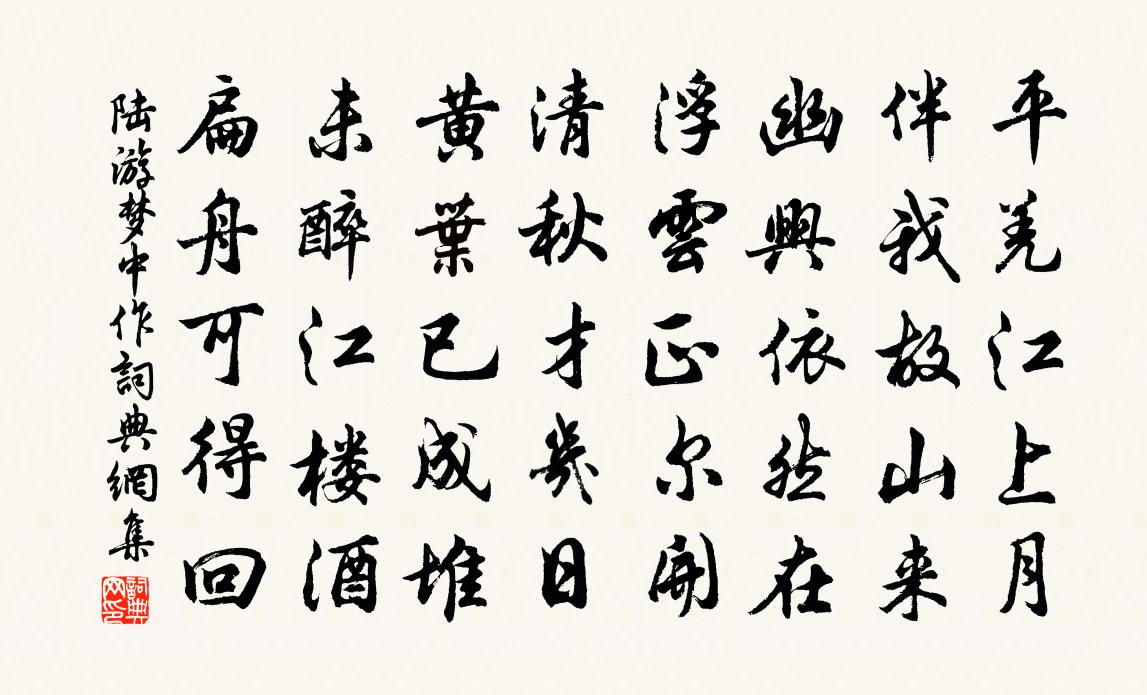 平羌江上月
伴我故山来
幽興依然在
浮雲正尔開
清秋才幾日
黄葉已成堆
未醉江楼酒
扁舟可得回
陆游梦中作詞典網集
詞典網印